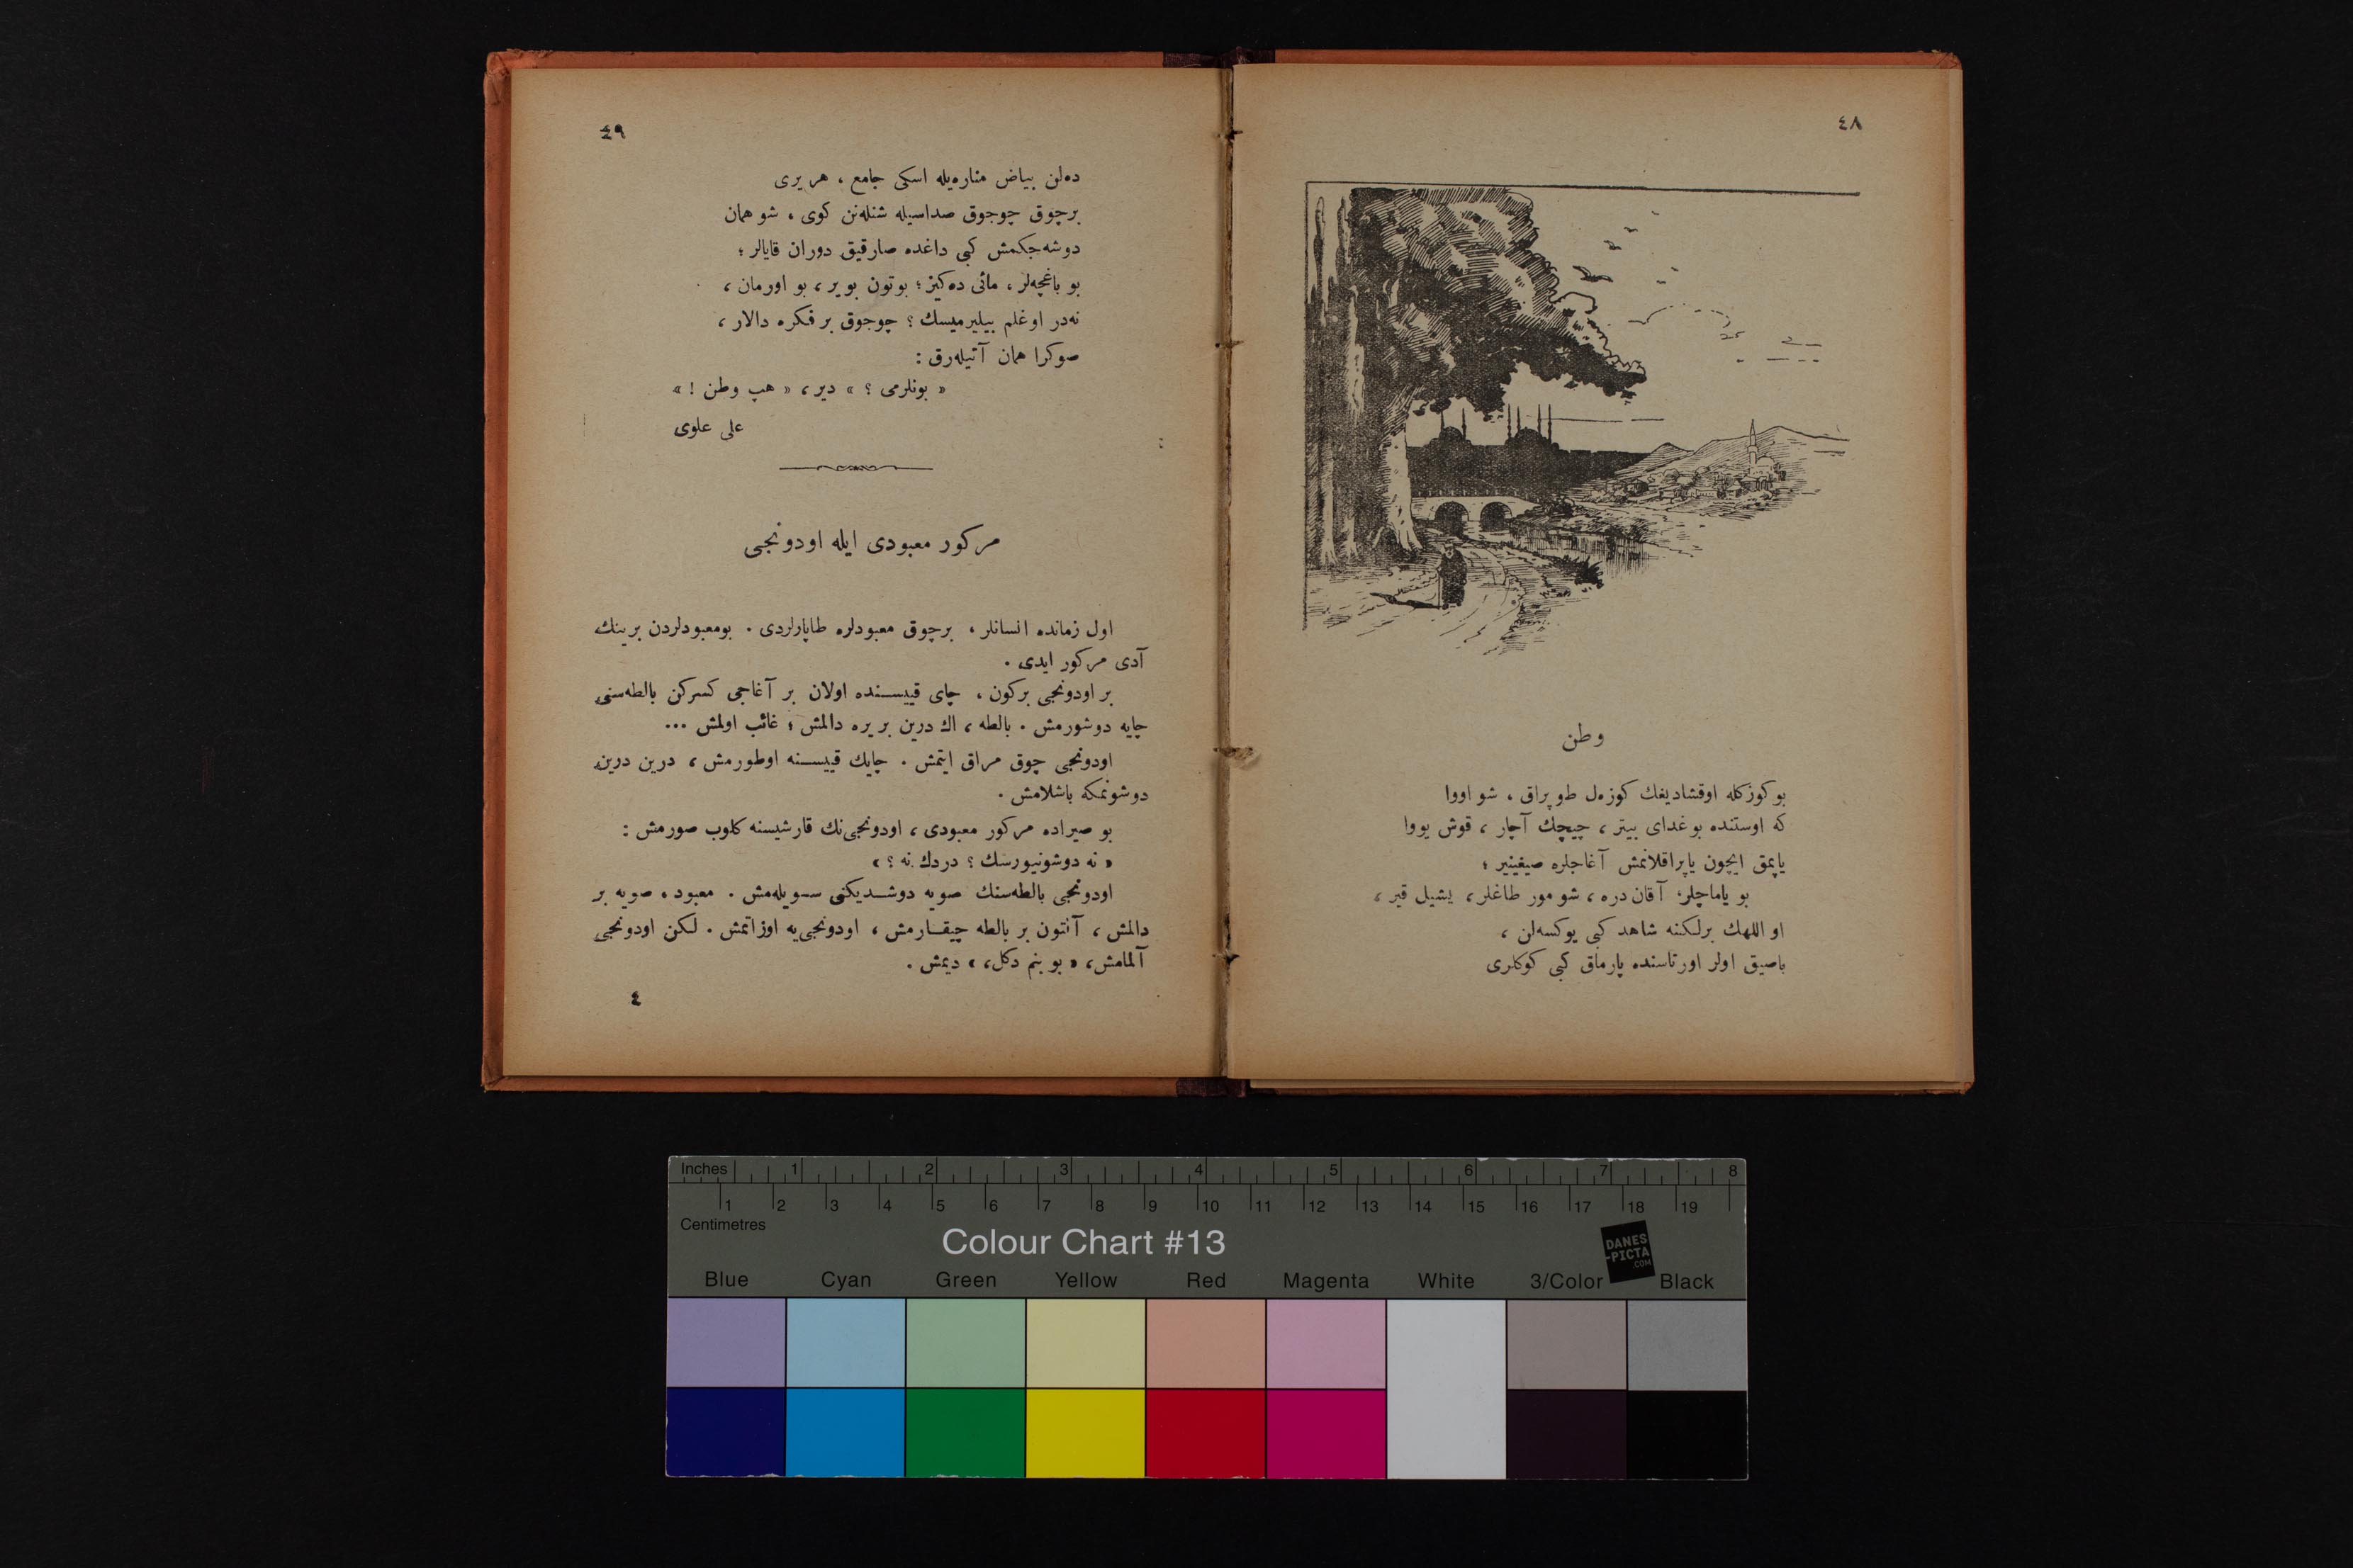 ٤٨
وطن
بو كوزكله اوقشاديغك كوزەل طوپراق ، شو اووا
كه اوستنده بوغداى بيتر ، چيچك آچار ، قوش يووا
ياپمق ايچون ياپراقلانمش آغاجلره صيغينير ؛
بو ياماچلر، آقان دره ، شو مور طاغلر ، يشيل قير ،
او اللهك برلكنه شاهد كبى يوكسەلن ،
باصيق اولر اورتاسنده پارماق كبى كوكلرى
٤٩
دەلن بياض منارەيله اسكى جامع ، هر يرى
برچوق چوجوق صداسيله شنلەنن كوى ، شو همان
دوشەجكمش كبى داغده صارقيق دوران قايالر ؛
بو باغچەلر ، مائى دەكيز ؛ بوتون بو ير ، بو اورمان ،
نەدر اوغلم بيليرميسك ؟ چوجوق بر فكره دالار ،
صوكرا همان آتيلەرق :
« بونلرمى ؟ » دير ، « هپ وطن ! »
على علوى
مركور معبودى ايله اودونجى
اول زمانده انسانلر ، برچوق معبودلره طاپارلردى . بومعبودلردن برينك
آدى مركور ايدى .
بر اودونجى بركون ، چاى قييسنده اولان بر آغاجى كسركن بالطەسنى
چايه دوشورمش . بالطه ، اك درين بر يره دالمش ؛ غائب اولمش ...
اودونجى چوق مراق ايتمش . چايك قييسنه اوطورمش ، درين درين
دوشونمكه باشلامش .
بو صيراده مركور معبودى ، اودونجى‌نك قارشيسنه كلوب صورمش :
« نه دوشونيورسك ؟ دردك نه ؟ »
اودونجى بالطەسنك صويه دوشديكنى سويلەمش . معبود ، صويه بر
دالمش ، آلتون بر بالطه چيقارمش ، اودونجى‌يه اوزاتمش . لكن اودونجى
آلمامش ، « بو بنم دكل ، » ديمش .
٤
Inches 1 2 3 4 5 6 7 8
1 2 3 4 5 6 7 8 9 10 11 12 13 14 15 16 17 18 19
Centimetres
Colour Chart #13
DANES
-PICTA
.COM
Blue Cyan Green Yellow Red Magenta White 3/Color Black